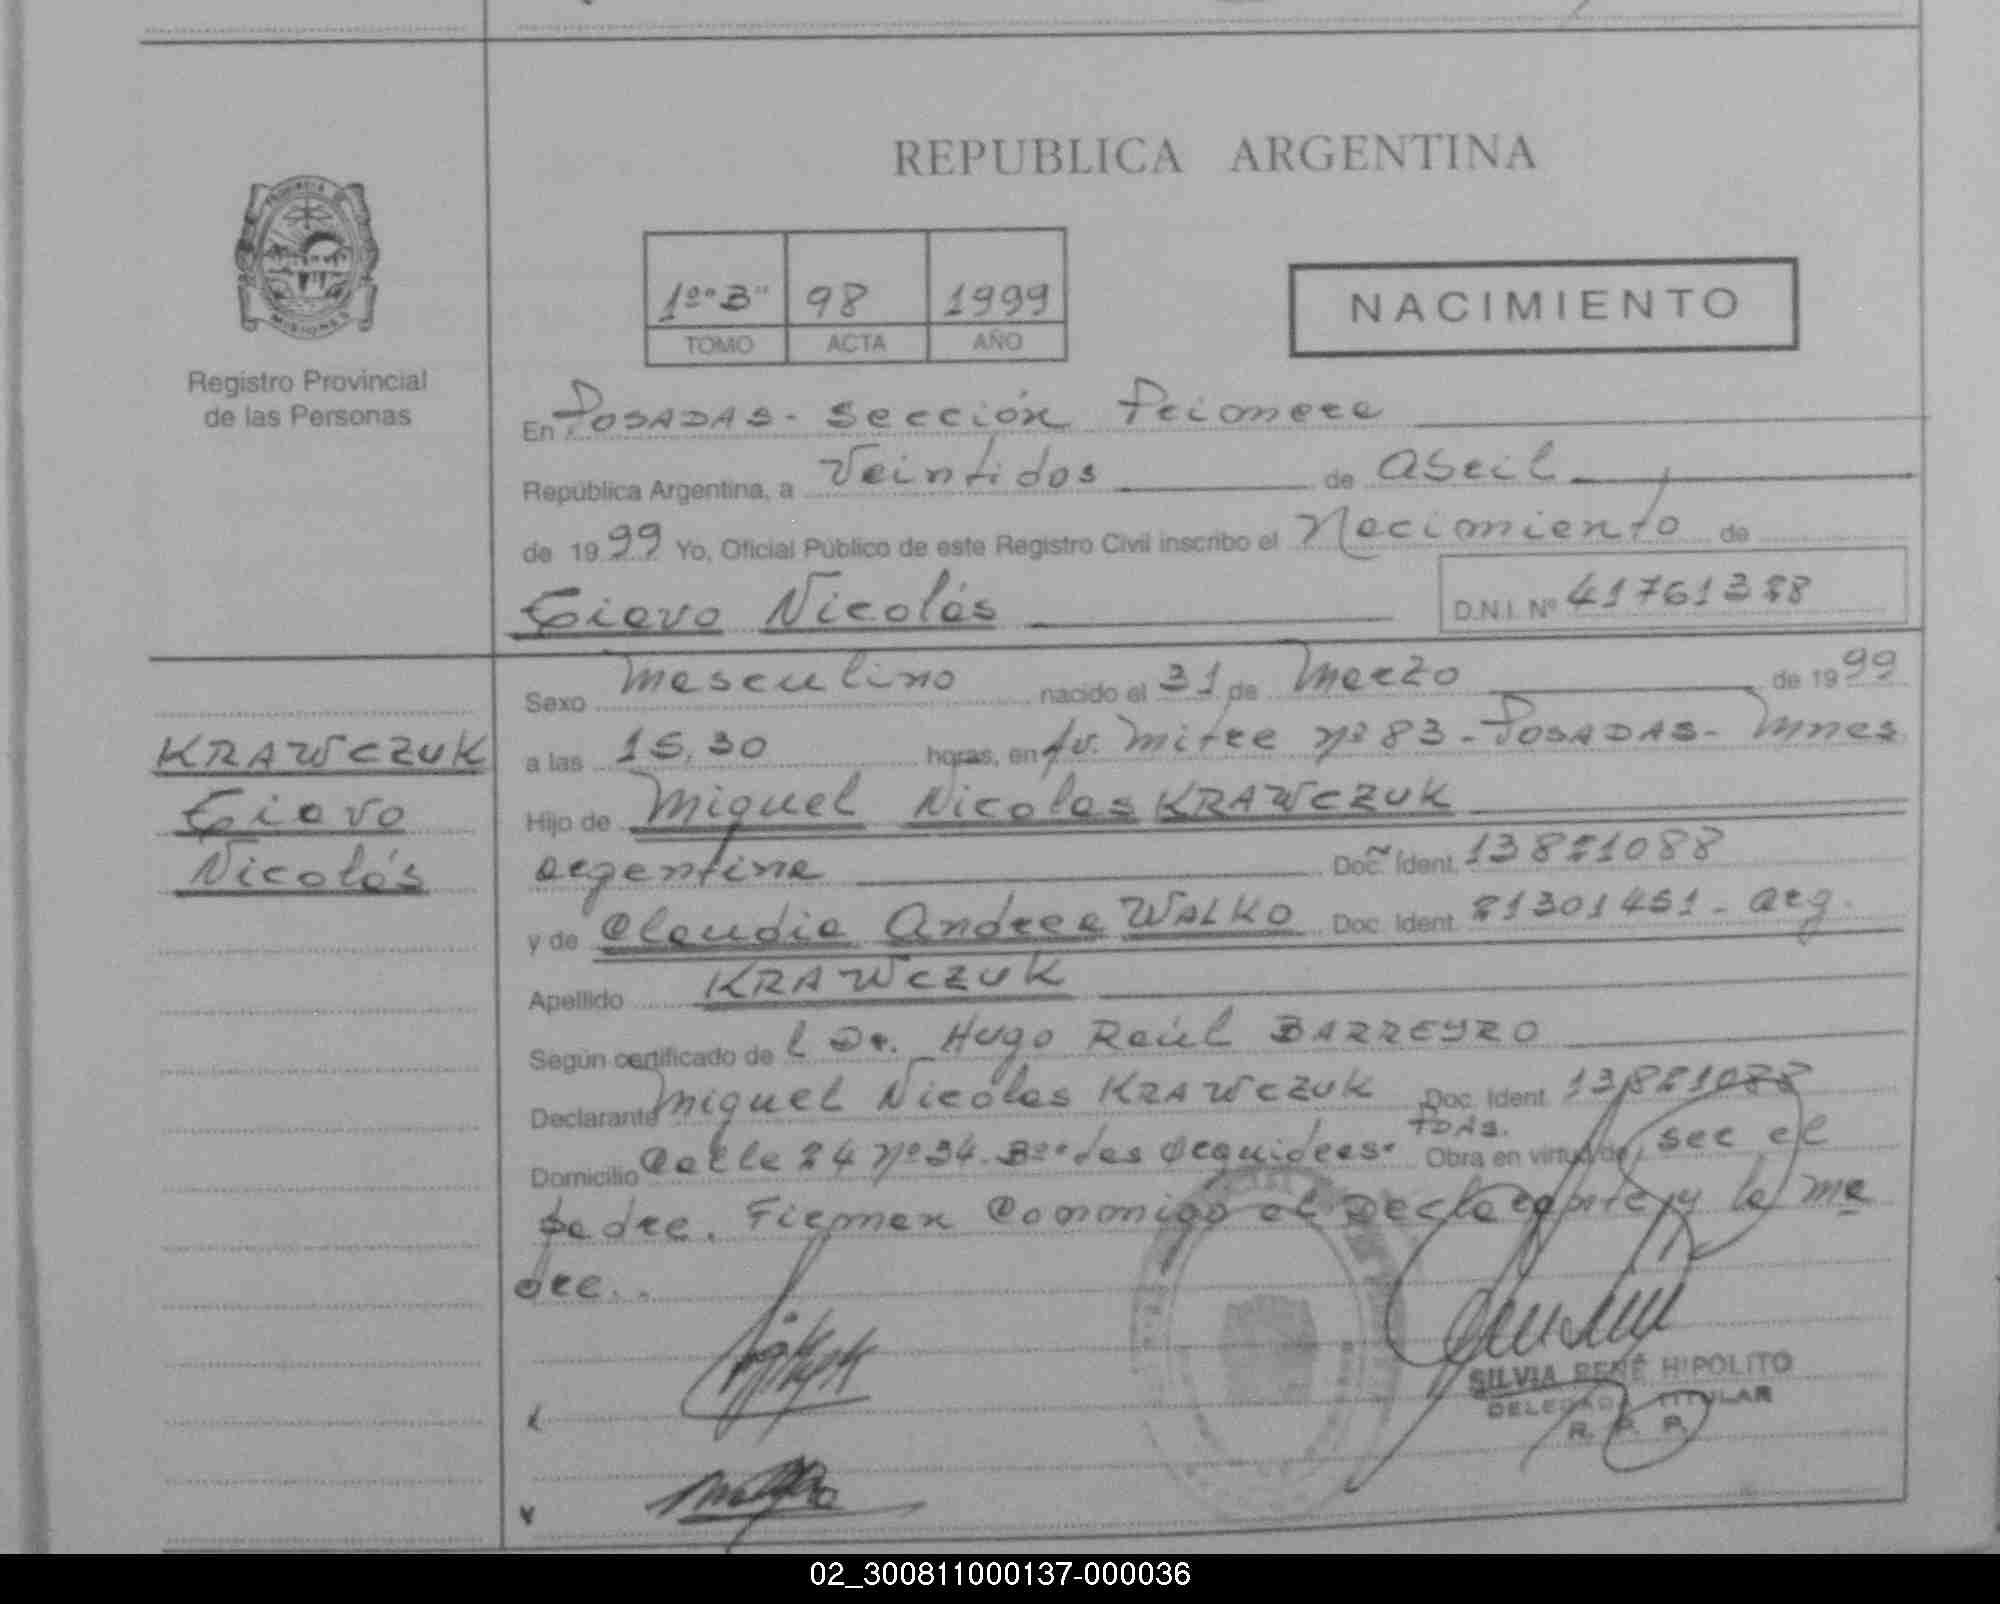 REPUBLICA ARGENTINA
PROVINCIA
MISIONES
Registro Provincial
de las Personas
1º "B" 98 1999
TOMO ACTA AÑO
NACIMIENTO
En POSADAS - Sección Primera
República Argentina, a Veintidos de Abril
de 1999 Yo, Oficial Público de este Registro Civil inscribo el Nacimiento de
Nicolás D.N.I. Nº
Sexo Masculino nacido el 31 de Marzo de 1999
KRAWCZUK
Nicolás
a las 15,30 horas, en Av. Mitre nº 83 - POSADAS - Mnes
Hijo de Miguel Nicolas KRAWCZUK
argentina Doc. Ident. 13821088
y de Claudia Andrea WALKO Doc. Ident. 21301451 - arg.
Apellido KRAWCZUK
Según certificado de l Dr. Hugo Raúl BARREYRO
Declarante Miguel Nicolas KRAWCZUK Doc. Ident. 13821088
Domicilio Calle 24 nº 34 - Bº Pdas. Obra en virtud de ser el
padre. Firman Conmigo el Declarante y la ma
dre..
SILVIA RENÉ HIPOLITO
DELEGADO TITULAR
R. P. P.
02_300811000137-000036